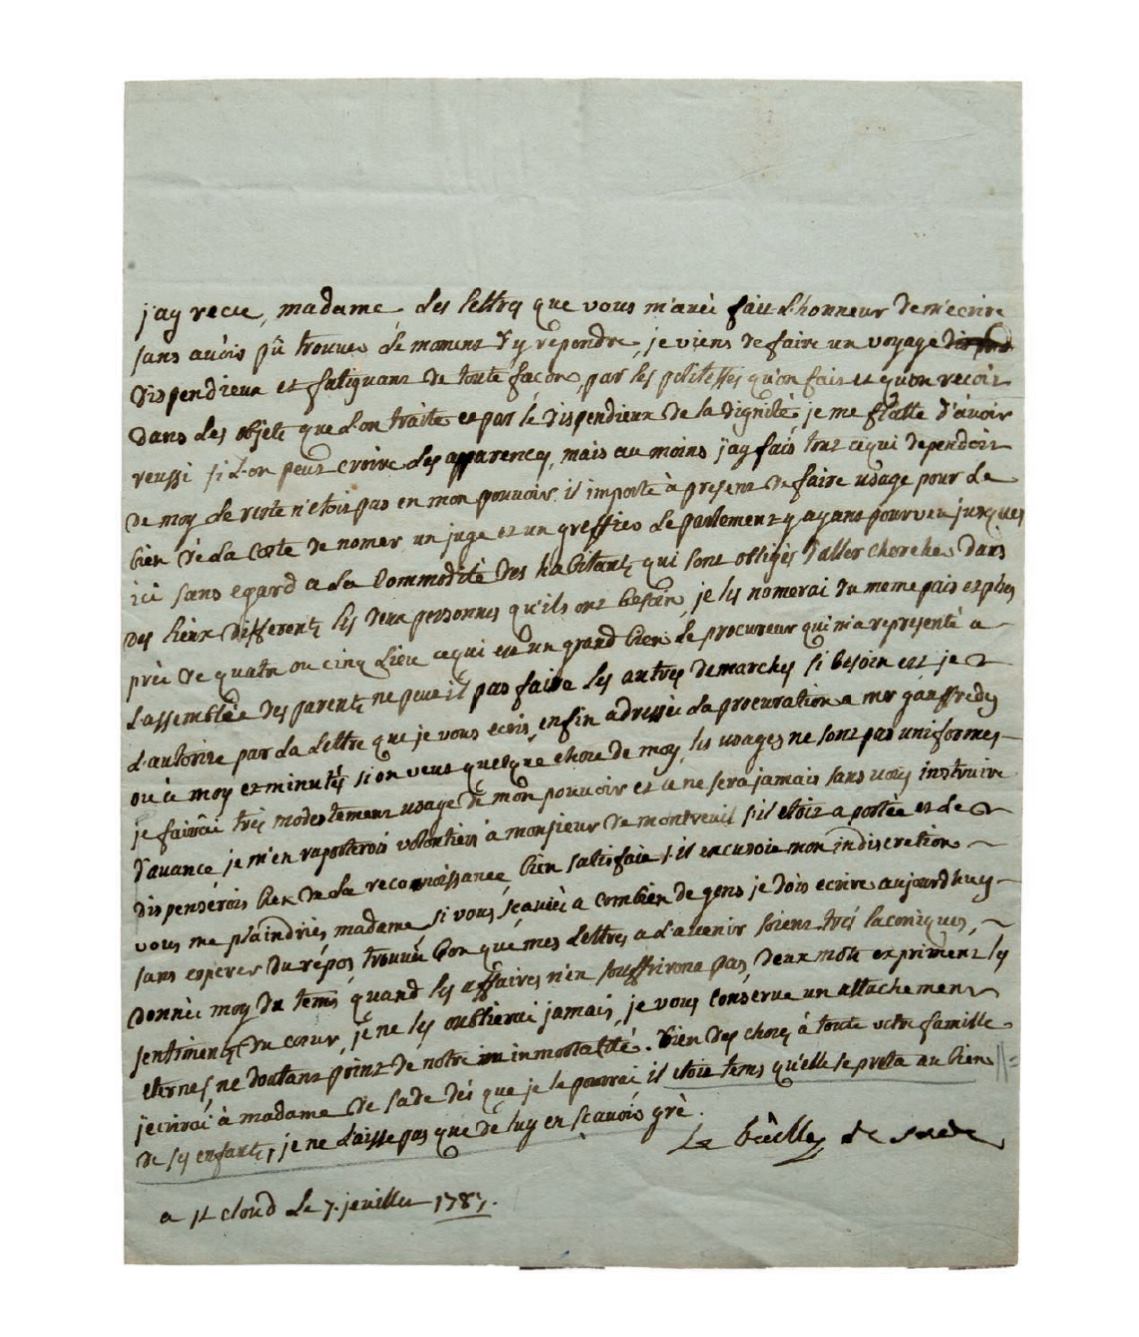 j'ay recue, madame les lettres que vous m'avéi fait l'honneur de m'ecrire
sans avois pû trouver le moment d'y répondre, je viens de faire un voyage
dispendieux et fatiguant de toute façon, par les politesses qu'on fait et qu'on recoit
dans les objets que l'on traite et par le dispendieux de la dignité, je me flatte d'avoir
reussi si l'on peut croire les apparences, mais au moins j'ay fais tout ce qui dependoit
de moy le reste n'etoit pas en mon pouvoir, il importe à present de faire usage pour le
bien de la coste de nomer un juge et un greffier le parlement y ayant pourveu jusques
ici sans egard a la commodité des habitants qui sont obligés d'aller chercher dans
des lieux differents les deux personnes qu'ils ont besoin, je les nomerai du meme pais et plus
prés de quatre ou cinq lieu ce qui est un grand bien le procureur qui m'a representé a
l'assemblée des parents ne peut il pas faire les autres demarches si besoin est je
l'autorise par la lettre que je vous ecris, enfin adressés la procuration a mr gauffredy
ou à moy et minutés si on veut quelque chose de moy, les usages ne sont pas uniformes
je fairai tres modestement usage de mon pouvoir et ce ne sera jamais sans vous instruire
d'avance je m'en raporterois volontiers à monsieur de montreuil s'il etoit a portée et le
dispenserois bien de la reconoissance bien satisfait s'il excusoit mon indiscretion
vous me plaindriés madame si vous scaviés a combien de gens je dois ecrire aujourdhuy
sans esperer du répos trouvés bon que mes lettres a l'avenir soient tres laconiques,
donnés moy du tems quand les affaires n'en souffriront pas, deux mots expriment les
sentiments du coeur, je ne les oublierai jamais, je vous conserve un attachement
eternel, ne doutant point de notre immortalité. bien des choses à toute votre famille
jecrirai à madame de sade dés que je le pourrai il etoit tems qu'elle se preta au bien
de ses enfants, je ne laisse pas que de luy en scavois gré.
le bailly de sade
a st cloud le 7. jeuillet 1787.